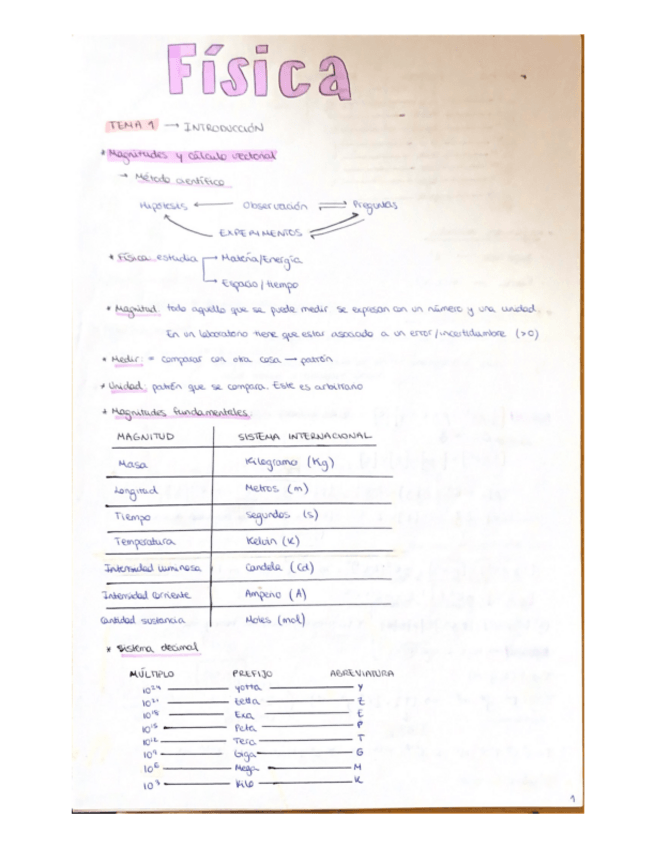 Física
TEMA 1 → INTRODUCCIÓN
* Magnitudes y cálculo vectorial
→ Método científico
Hipótesis ← Observación ⇌ Preguntas
EXPERIMENTOS
* Física estudia → Materia/Energía
→ Espacio/tiempo
* Magnitud: todo aquello que se puede medir se expresan con un número y una unidad.
En un laboratorio tiene que estar asociado a un error/incertidumbre (>0)
* Medir: = comparar con otra cosa → patrón
* Unidad: patrón que se compara. Este es arbitrario
* Magnitudes fundamentales
MAGNITUD SISTEMA INTERNACIONAL
Masa Kilogramo (Kg)
Longitud Metros (m)
Tiempo Segundos (s)
Temperatura Kelvin (K)
Intensidad luminosa Candela (Cd)
Intensidad corriente Amperio (A)
Cantidad sustancia Moles (mol)
* Sistema decimal
MÚLTIPLO PREFIJO ABREVIATURA
10²⁴ yotta Y
10²¹ zetta Z
10¹⁸ Exa E
10¹⁵ Peta P
10¹² Tera T
10⁹ Giga G
10⁶ Mega M
10³ Kilo K
1